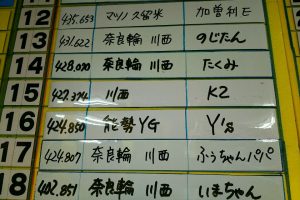 12 435,653 マツノ久留米 加曽利E
13 431,622 奈良輪 川西 のじたん
14 428,090 奈良輪 川西 たくみ
15 427,374 川西 K2
16 424,850 能勢YG Y's
17 424,807 奈良輪 川西 ふうちゃんパパ
18 402,851 奈良輪 川西 いまちゃん